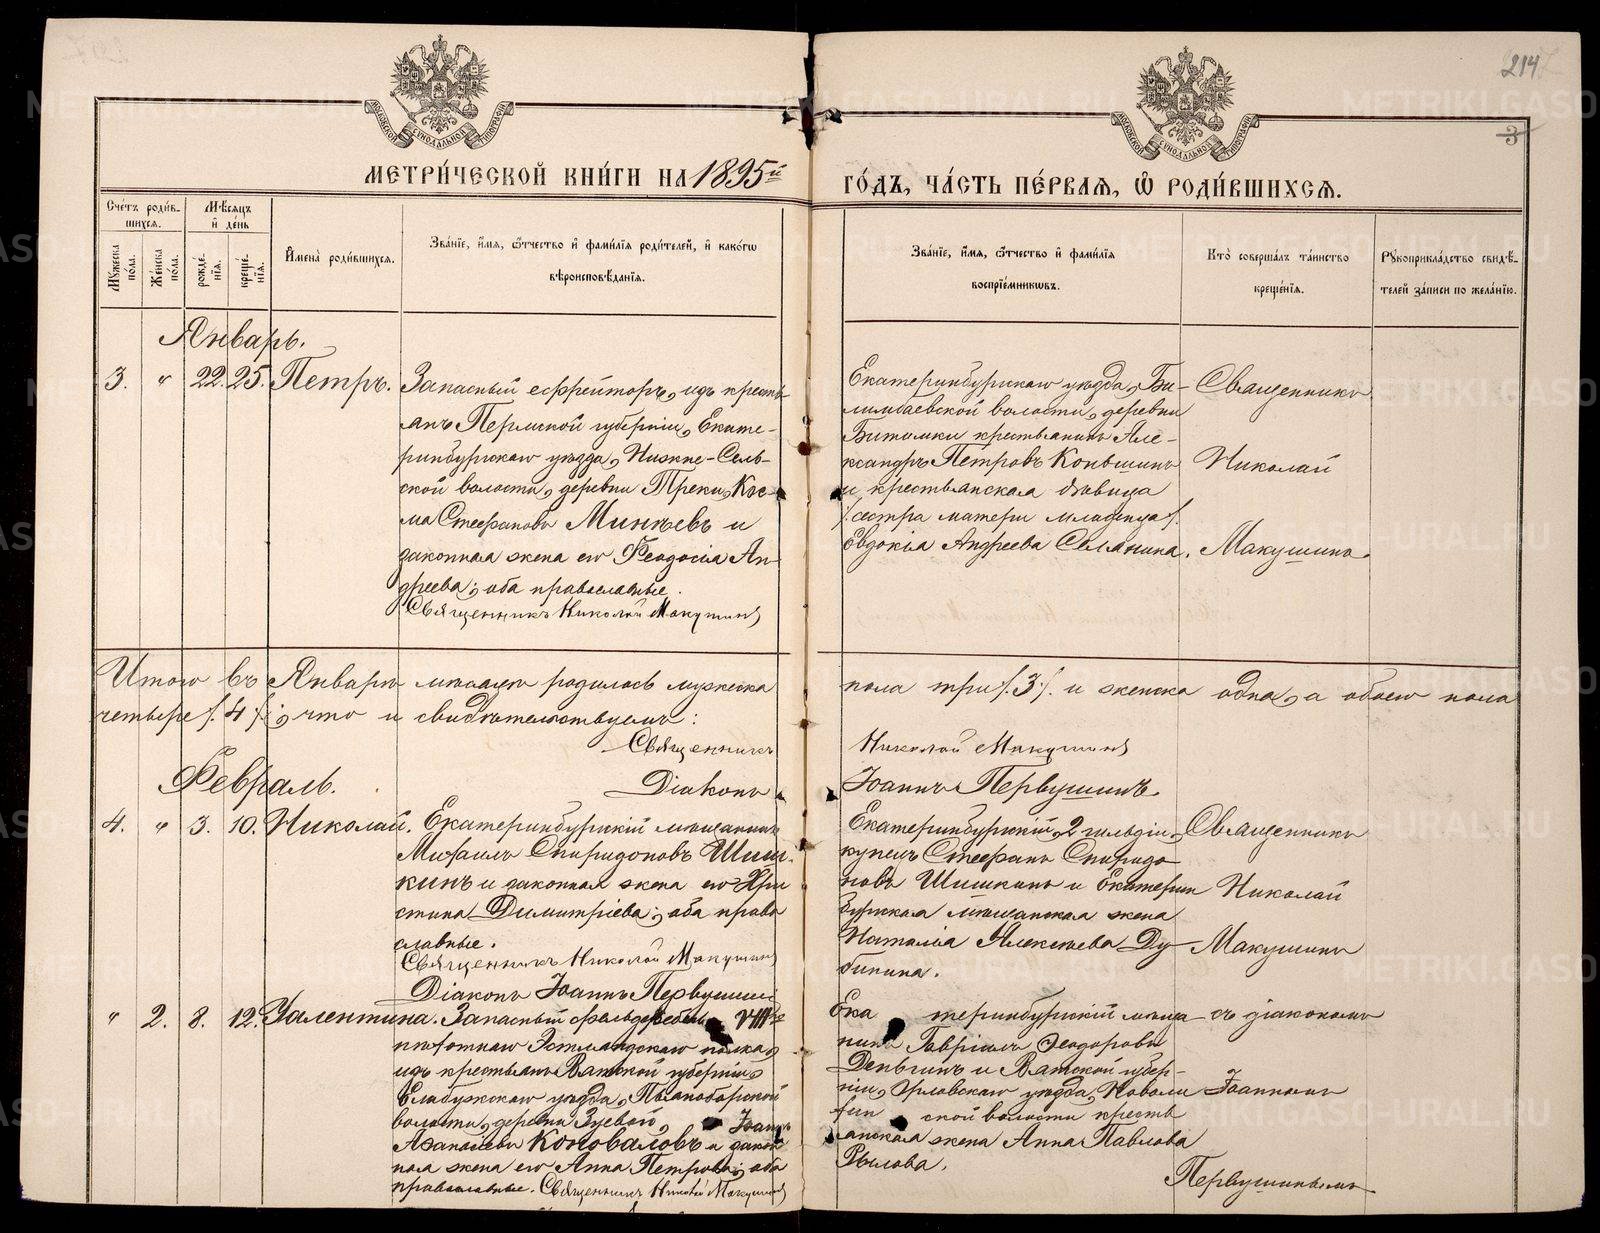 214
3
МОСКОВСКОЙ СѴНОДАЛЬНОЙ ТИПОГРАФІИ
МОСКОВСКОЙ СѴНОДАЛЬНОЙ ТИПОГРАФІИ
МЕТРИ́ЧЕСКОЙ КНИ́ГИ НА 1895й
ГО́ДЪ, ЧА́СТЬ ПЕ́РВАЯ, Ѡ РОДИ́ВШИХСЯ.
Сче́тъ роди́в-
шихся.
Мѣ́сяцъ
и де́нь
Му́жеска по́ла.
Же́нска по́ла.
рожде́нїя.
креще́нїя.
Имена̀ роди́вшихся.
Зва́нїе, и́мя, ѻ́тчество и фами́лїя роди́телей, и како́гѡ
вѣроисповѣ́данїя.
Зва́нїе, и́мя, ѻ́тчество и фами́лїя
воспрїе́мникѡвъ.
Кто̀ соверша́лъ та́инство
креще́нїя.
Рукоприкла́дство свидѣ́-
телей за́писи по жела́нїю.
Январь.
3. " 22. 25. Петръ.
Запасный ефрейторъ, изъ кресть-
янъ Пермской губерніи, Екате-
ринбургскаго уѣзда, Нижне-Сель-
ской волости, деревни Треки, Кос-
ма Стефановъ Минѣевъ и
законная жена его Феодосія Ан-
дреева; оба православные.
Священникъ Николай Макушинъ
Екатеринбургскаго уѣзда, Би-
лимбаевской волости, деревни
Битимки крестьянинъ Але-
ксандръ Петровъ Коньшинъ
и крестьянская дѣвица
/сестра матери младенца/.
Евдокія Андреева Селянина.
Священникъ
Николай
Макушинъ.
Итого въ Январѣ мѣсяцѣ родилось мужеска
пола три /.3/. и женска одна, а обоего пола
четыре /.4/.; что и свидѣтельствуемъ:
Священникъ
Николай Макушинъ
Діаконъ
Іоаннъ Первушинъ.
Февраль.
4. " 3. 10. Николай.
Екатеринбургскій мѣщанинъ
Михаилъ Спиридоновъ Шиш-
кинъ и законная жена его Хри
стина Димитріева; оба право
славные.
Священникъ Николай Макушинъ
Діаконъ Іоаннъ Первушинъ
Екатеринбургскій 2 гильдіи
купецъ Стефанъ Спиридо
новъ Шишкинъ и Екатерин
бургская мѣщанская жена
Наталія Алексѣева Ду
бинина.
Священникъ
Николай
Макушинъ
" 2. 8. 12. Валентина.
Запасный фельдфебель VIII го
пѣхотнаго Эстляндскаго полка,
изъ крестьянъ Вятской губерніи,
Елабужскаго уѣзда, Пьяноборской
волости, деревни Зуевой, Іоаннъ
Аѳанасьевъ Коноваловъ и закон
ная жена его Анна Петрова; оба
православные. Священникъ Николай Макушинъ
Ека теринбургскій мѣща
нинъ Гавріилъ Ѳеодоровъ
Деньгинъ и Вятской губер-
ніи, Орловскаго уѣзда,
ской волости кресть
янская жена Анна Павлова
Рылова.
съ діакономъ
Іоанномъ
Первушинымъ